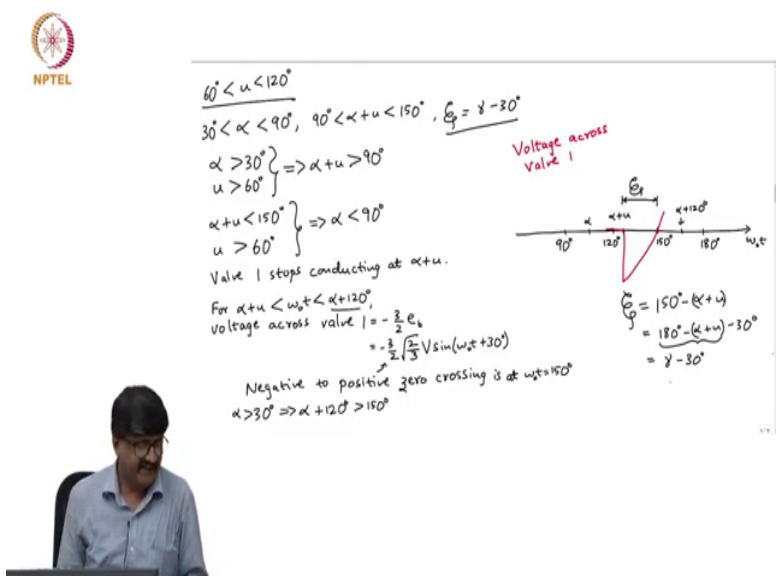 NPTEL
60° < u < 120°
30° < α < 90°, 90° < α+u < 150°, ξ = γ - 30°
α > 30°
u > 60° } => α+u > 90°
α+u < 150°
u > 60° } => α < 90°
Valve 1 stops conducting at α+u.
For α+u < ω₀t < α+120°,
voltage across valve 1 = -3/2 e_b
= -3/2 √(2/3) V sin(ω₀t+30°)
Negative to positive zero crossing is at ω₀t=150°
α > 30° => α + 120° > 150°
Voltage across
valve 1
ξ
α α+u α+120°
90° 120° 150° 180° ω₀t
ξ = 150° - (α+u)
= 180° - (α+u) - 30°
= γ - 30°